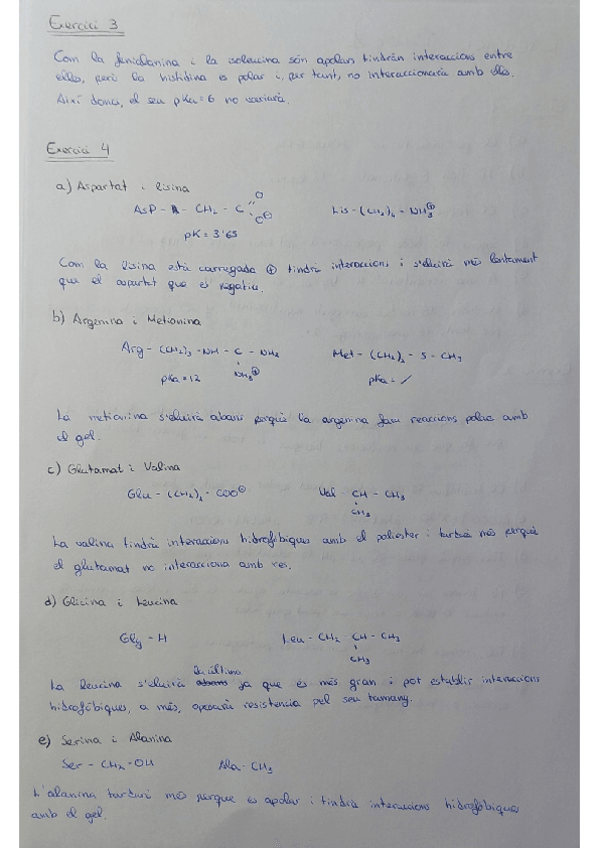 Exercici 3
Com la fenilalanina i la isoleucina són apolars tindràn interaccions entre
elles, però la histidina es polar i, per tant, no interaccionarà amb elles.
Així doncs, el seu pKa = 6 no variarà.
Exercici 4
a) Aspartat i lisina
Asp - CH₂ - C
O
O⊖
Lis - (CH₂)₄ - NH₃⊕
pK = 3'65
Com la lisina està carregada ⊕ tindrà interaccions i s'eluirà més lentament
que el aspartat que es negatiu.
b) Argenina i Metionina
Arg - (CH₂)₃ - NH - C - NH₂
NH₂⊕
Met - (CH₂)₂ - S - CH₃
pKa = 12
pKa = /
La metionina s'eluirà abans perquè la argenina farà reaccions polars amb
el gel.
c) Glutamat i Valina
Glu - (CH₂)₂ - COO⊖
Val - CH - CH₃
CH₃
La valina tindrà interaccions hidrofòbiques amb el poliester i tardarà més perquè
el glutamat no interacciona amb res.
d) Glicina i Leucina
Gly - H
Leu - CH₂ CH - CH₃
CH₃
La leucina s'eluirà la última ja que es més gran i pot establir interaccions
hidrofòbiques, a més, oposarà resistencia pel seu tamany.
e) Serina i Alanina
Ser - CH₂ - OH
Ala - CH₃
L'alanina tardarà més perque es apolar i tindrà interaccions hidrofòbiques
amb el gel.